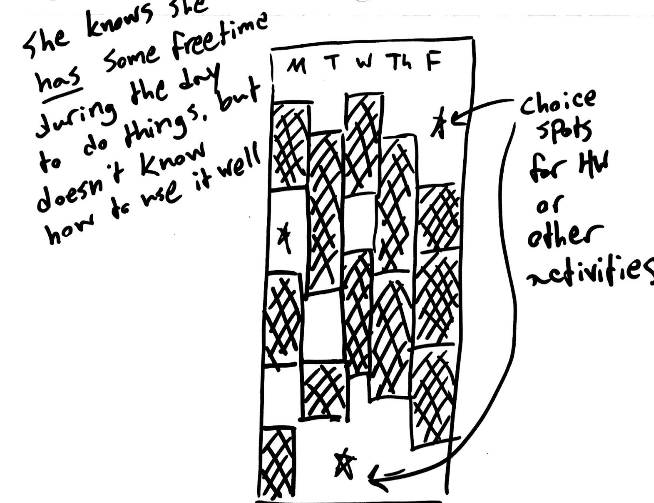 She knows she
has some freetime
during the day
to do things, but
doesn't know
how to use it well
M T W Th F
choice
spots
for HW
or
other
activities